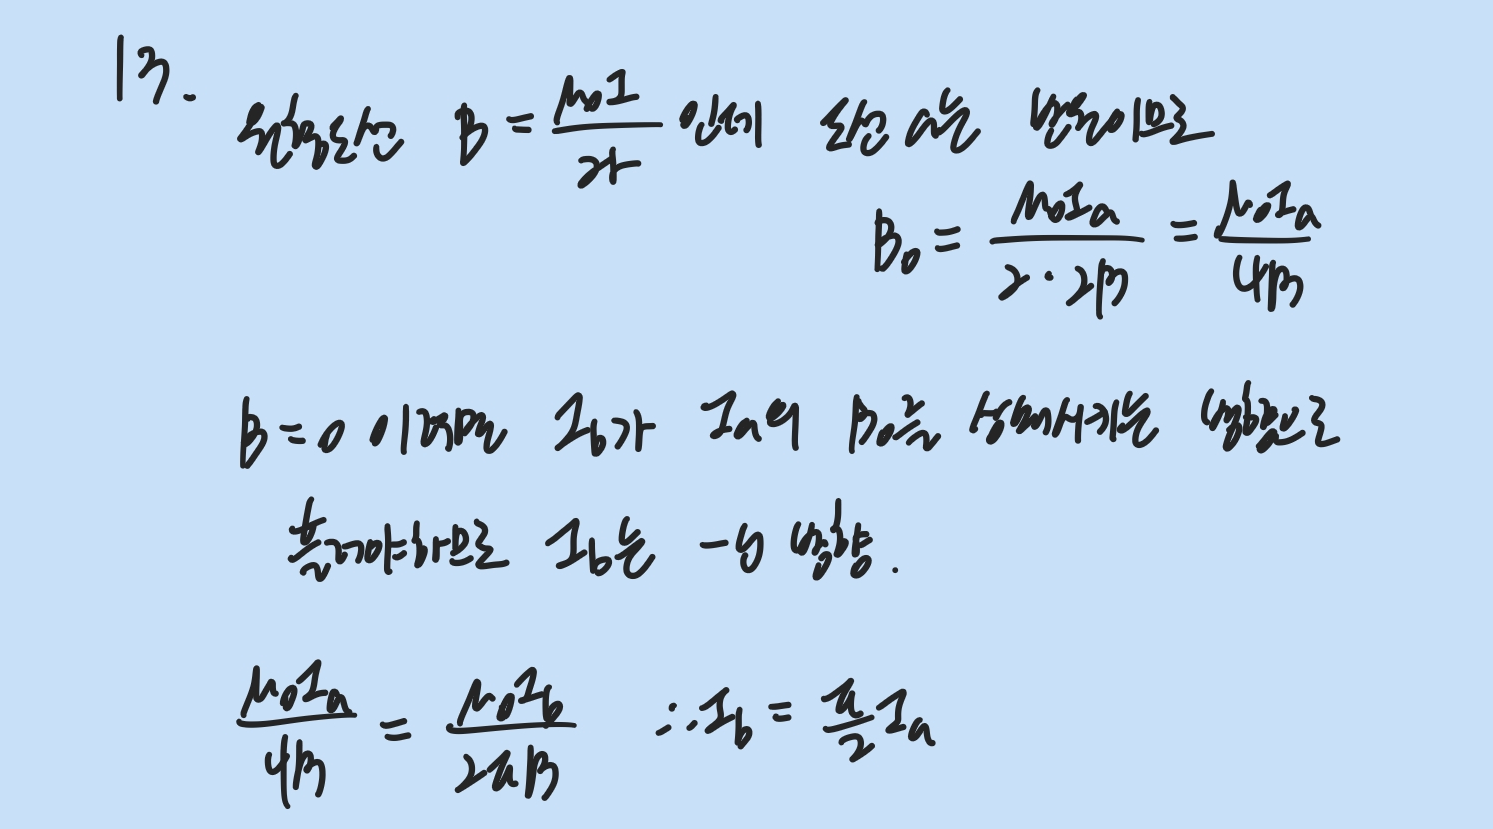 13.
원형도선 B = μ₀I / 2r 인데 도선 a는 반쪽이므로
B₀ = μ₀Iₐ / 2·2β = μ₀Iₐ / 4β
B=0 이려면 I_b가 Iₐ의 B₀을 상쇄시키는 방향으로
흘러야하므로 I_b는 -y 방향.
μ₀Iₐ / 4β = μ₀I_b / 2πβ ∴ I_b = π/2 Iₐ